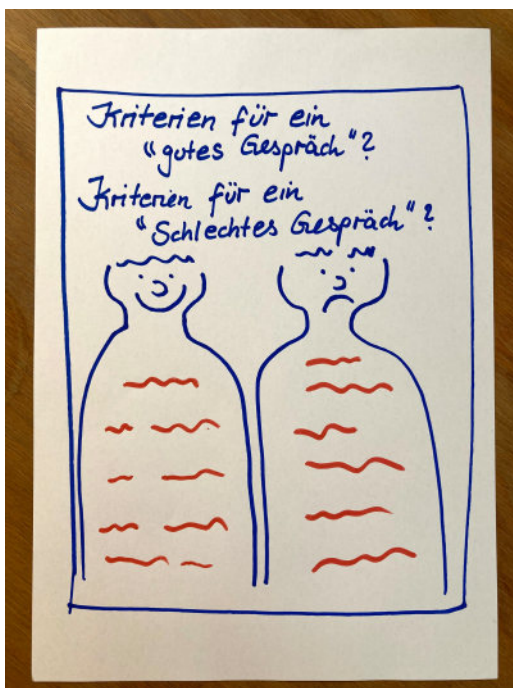 Kriterien für ein
"gutes Gespräch"?
Kriterien für ein
"Schlechtes Gespräch"?